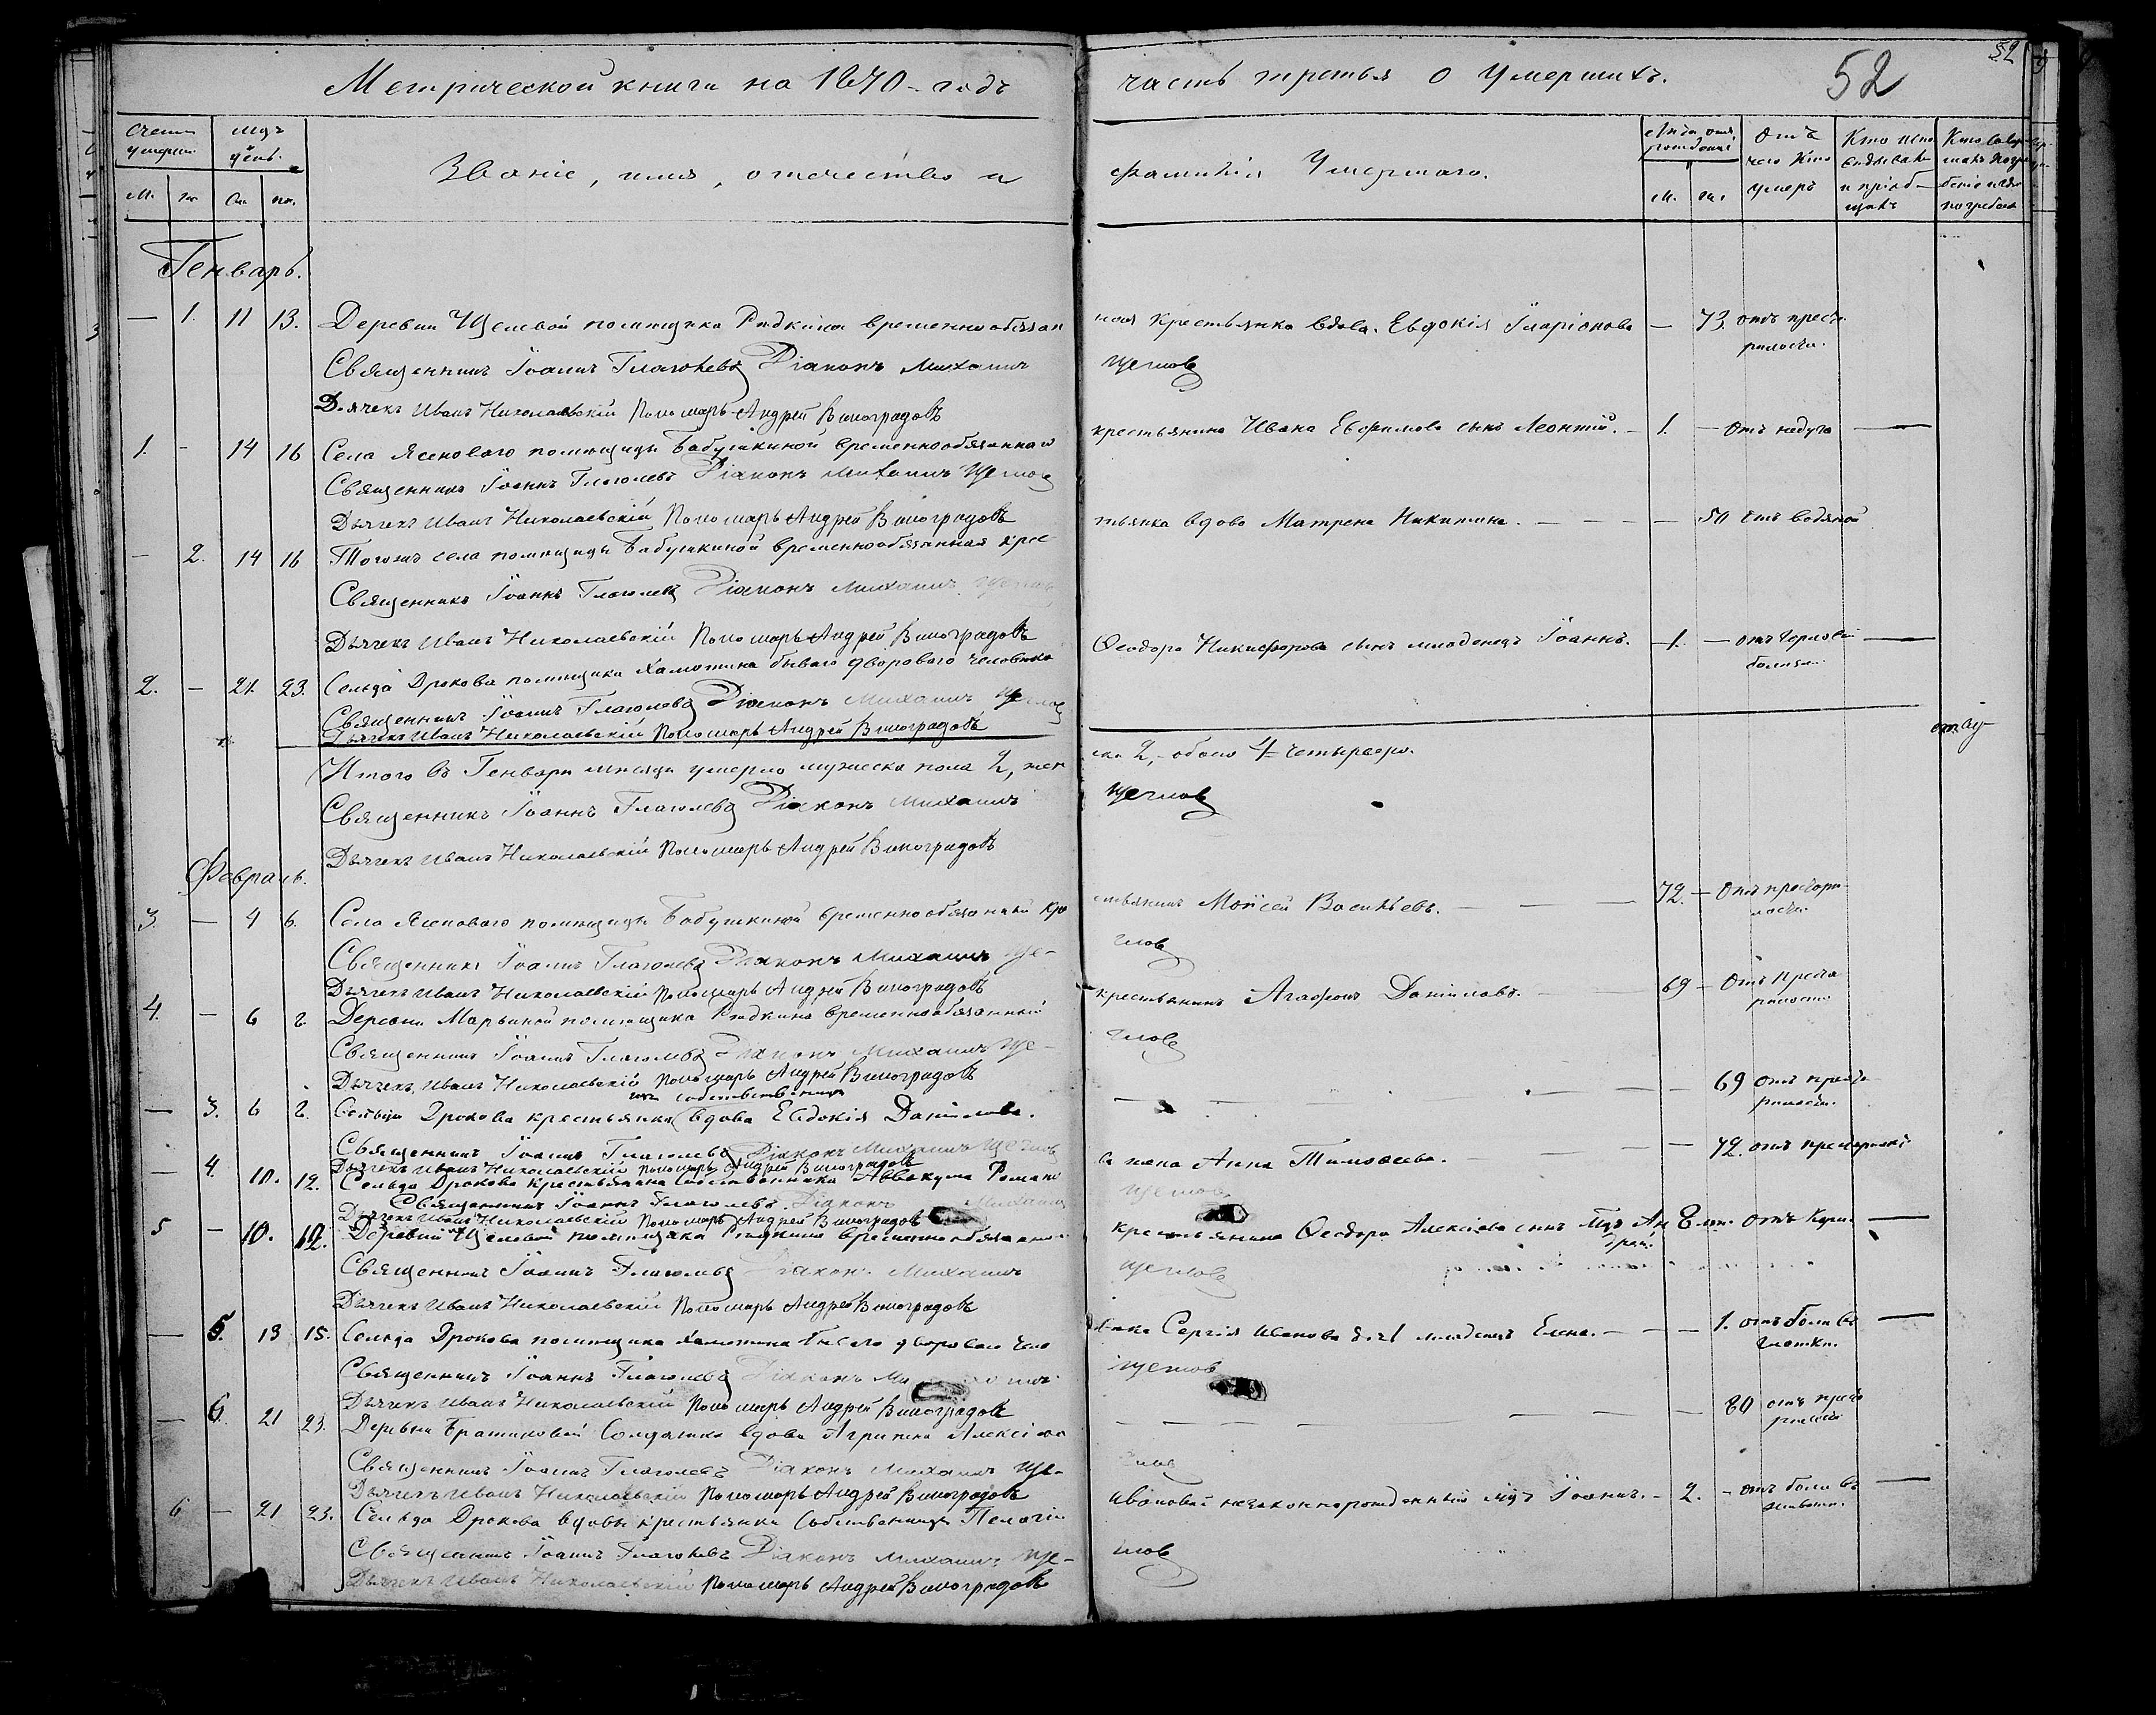 52
52
Метрической книги на 1870 - годъ часть третья о умершихъ.
Счетъ умерши
М. ж.
мцъ день.
См. по.
Званіе, имя, отечество и фамилія Умершаго.
Лѣта отъ рожденія
м. ж.
Отъ чего кто умеръ
Кто испо
вѣдывалъ
и пріоб-
щалъ
Кто
погребе
Генварь.
— 1. 11 13. Деревни Щеловой помѣщика Рѣдкина временно обязан ная крестьянка вдова Евдокія Иларіонова — 73. отъ преста
рѣлости.
Священникъ Іоаннъ Глаголевъ Діаконъ Михаилъ Щегловъ
Дьячекъ Иванъ Николаевскій Пономарь Андрей Виноградовъ
1. - 14 16 Села Ясеноваго помѣщицы Бабушкиной временнообязаннаго крестьянина Ивана Евфимова сынъ Леонтій. — 1. — Отъ недуга —
Священникъ Іоаннъ Глаголевъ Діаконъ Михаилъ Щегловъ
Дьячекъ Иванъ Николаевскій Пономарь Андрей Виноградовъ
— 2. 14 16 Тогожъ села помѣщицы Бабушкиной временнообязанная крес тьянка вдова Матрена Никитина. — — — — 50 Отъ водяной
Священникъ Іоаннъ Глаголевъ Діаконъ Михаилъ Щегловъ
Дьячекъ Иванъ Николаевскій Пономарь Андрей Виноградовъ
2. — 21. 23. Сельца Дрокова помѣщика Хамотина бываго двороваго человѣка Ѳеодора Никифорова сынъ младенецъ Іоаннъ. — 1. — отъ
болѣзни —
Священникъ Іоаннъ Глаголевъ Діаконъ Михаилъ Щегловъ
Дьячекъ Иванъ Николаевскій Пономарь Андрей Виноградовъ
Итого въ Генварѣ мѣсяцѣ умерло мужеска пола 2, жен ска 2, - обоего 4 четырьеро.
Священникъ Іоаннъ Глаголевъ Діаконъ Михаилъ Щегловъ
Дьячекъ Иванъ Николаевскій Пономарь Андрей Виноградовъ
Февраль.
3. — 4 6. Села Ясеноваго помѣщицы Бабушкиной временно обязанный кре стьянинъ Моѵсей Васильевъ. — — 72. — Отъ престарѣ
лости.
Священникъ Іоаннъ Глаголевъ Діаконъ Михаилъ Ще- гловъ
Дьячекъ Иванъ Николаевскій Пономарь Андрей Виноградовъ
4. — 6 8. Деревни Марьиной помѣщика Рѣдкина временнообязанный крестьянинъ Агафонъ Даниловъ. — 69 — Отъ преста
рѣлости
Священникъ Іоаннъ Глаголевъ Діаконъ Михаилъ Ще- гловъ
Дьячекъ Иванъ Николаевскій Пономарь Андрей Виноградовъ
изъ собственницъ
— 3. 6 8. Сельца Дрокова крестьянка вдова Евдокія Данилова. — — — 69 отъ преста
рѣлости.
Священникъ Іоаннъ Глаголевъ Діаконъ Михаилъ Щегловъ
Дьячекъ Иванъ Николаевскій Пономарь Андрей Виноградовъ
— 4. 10. 12. Сельца Дрокова крестьянина собственника Аввакума Романо ва жена Анна Тимоѳеева. — — 72. отъ престарѣлости
Священникъ Іоаннъ Глаголевъ Діаконъ Михаилъ Щегловъ
Дьячекъ Иванъ Николаевскій Пономарь Андрей Виноградовъ
5 — 10. 12. Деревни Щеловой помѣщика Рѣдкина временно обязаннаго крестьянина Ѳеодора Алексіева сынъ Ан
дрей. 8 отъ —
Священникъ Іоаннъ Глаголевъ Діаконъ Михаилъ Щегловъ
Дьячекъ Иванъ Николаевскій Пономарь Андрей Виноградовъ
— 5. 13 15. Сельца Дрокова помѣщика Хамотина бываго двороваго чело вѣка Сергія Иванова дочь младенецъ Елена. — — — 1. отъ боли въ
глоткѣ. —
Священникъ Іоаннъ Глаголевъ Діаконъ Михаилъ Щегловъ
Дьячекъ Иванъ Николаевскій Пономарь Андрей Виноградовъ
— 6. 21 23. Деревни Братиковой Солдатка вдова Агрипена Алексіева — — — — 80 отъ преста
рѣлости
Священникъ Іоаннъ Глаголевъ Діаконъ Михаилъ Ще- гловъ
Дьячекъ Иванъ Николаевскій Пономарь Андрей Виноградовъ
6 — 21 23. Сельца Дрокова вдовы крестьянки собственницы Пелагіи Ивановой незаконнорожденный Іоаннъ. — 2. — отъ боли въ
животѣ. —
Священникъ Іоаннъ Глаголевъ Діаконъ Михаилъ Ще- гловъ
Дьячекъ Иванъ Николаевскій Пономарь Андрей Виноградовъ